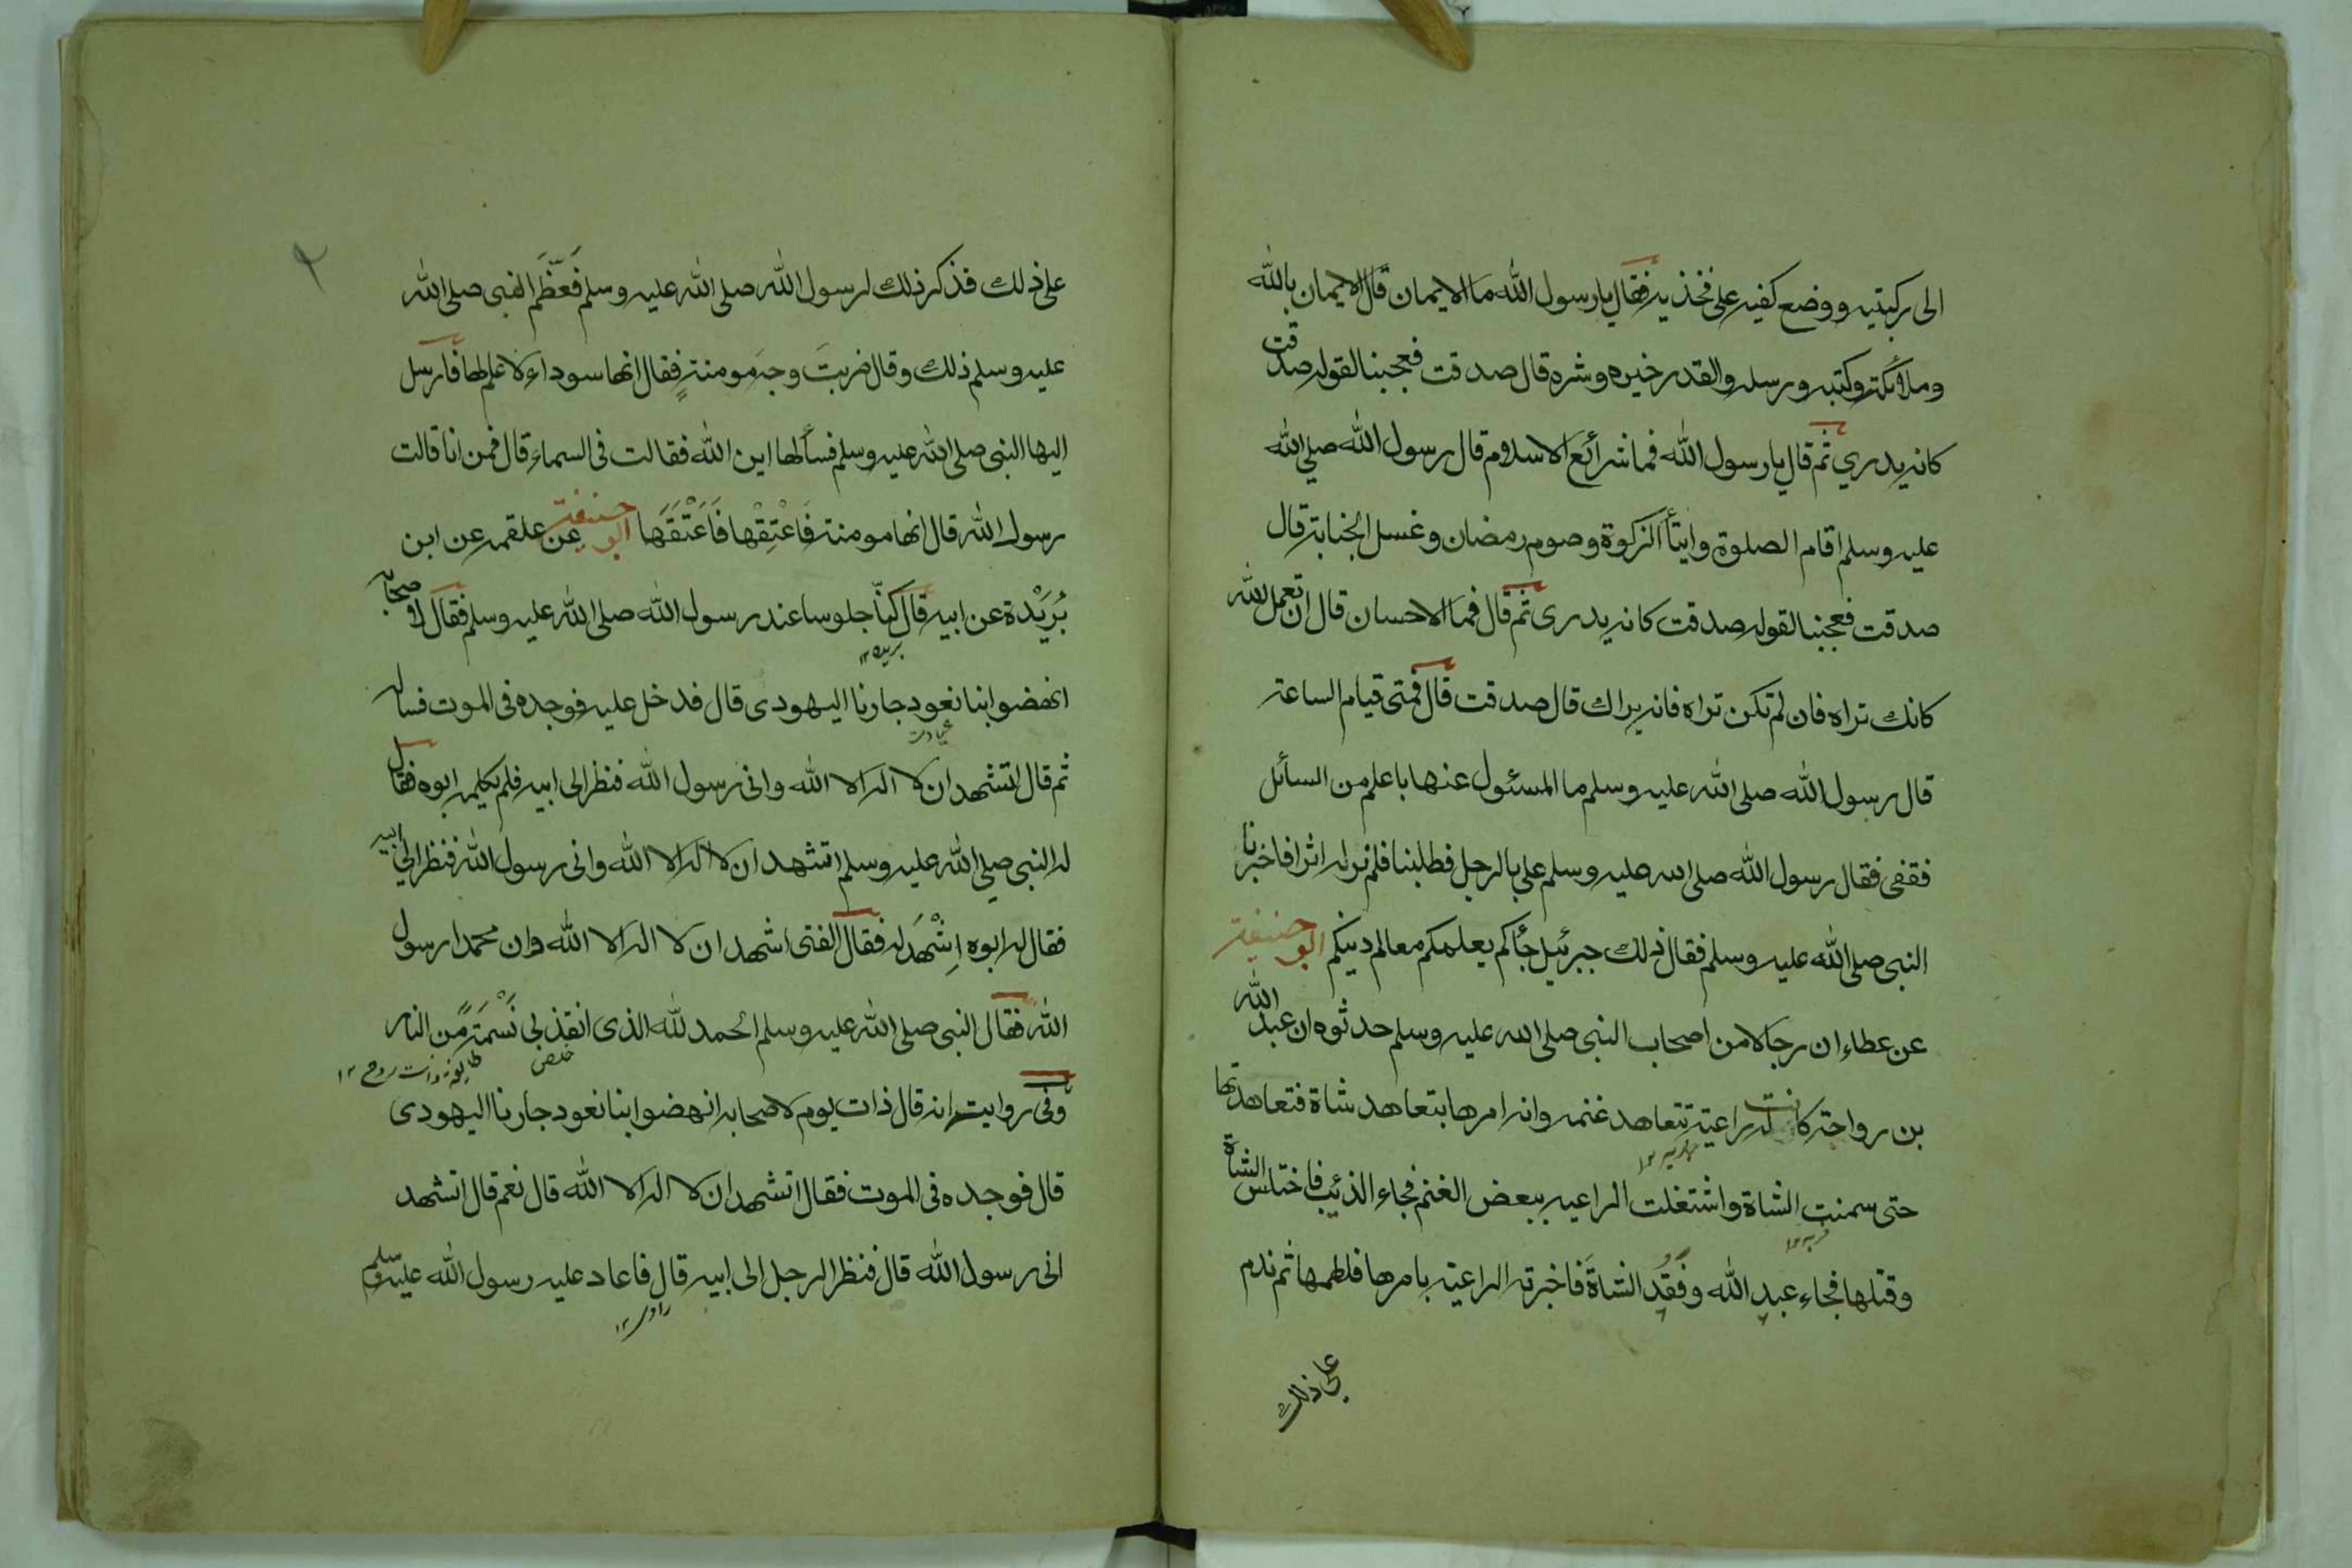 الى ركبتيه ووضع كفيه على فخذيه فقال يا رسول الله ما الايمان قال الايمان بالله
وملائكته وكتبه ورسله والقدر خيره وشره قال صدقت فعجبنا لقوله صدقت
كانه يدري ثم قال يا رسول الله فما شرائع الاسلام قال رسول الله صلي الله
عليه وسلم اقام الصلوة وايتأ الزكوة وصوم رمضان وغسل الجنابة قال
صدقت فعجبنا لقوله صدقت كانه يدرى ثم قال فما الاحسان قال ان تعمل لله
كانك تراه فان لم تكن تراه فانه يراك قال صدقت قال فمتى قيام الساعة
قال رسول الله صلى الله عليه وسلم ما المسئول عنها باعلم من السائل
فقفى فقال رسول الله صلى الله عليه وسلم على بالرجل فطلبنا فلم نر له اثرا فاخبرنا
النبى صلى الله عليه وسلم فقال ذلك جبرئيل جأكم يعلمكم معالم دينكم ابو حنيفة
عن عطاء ان رجالا من اصحاب النبى صلى الله عليه وسلم حدثوه ان عبد الله
بن رواحة كانت له راعية تتعاهد غنمه وانه امرها بتعاهد شاة فتعاهدتها
حتى سمنت الشاة واشتغلت الراعيه ببعض الغنم فجاء الذئب فاختلس الشاة
فربه ١٢
وقتلها فجاء عبد الله وفقد الشاة فاخبرته الراعية بامرها فلطمها ثم ندم
على ذلك
٢
على ذلك فذكر ذلك لرسول الله صلى الله عليه وسلم فَعَظَّمَ النبى صلى الله
عليه وسلم ذلك وقال ضربتَ وجهَ مومنةٍ فقال انها سوداء لا علم لها فارسل
اليها النبى صلى الله عليه وسلم فسألها اين الله فقالت فى السماء قال فمن انا قالت
رسول الله قال انها مومنة فَاعْتِقْها فَاَعْتَقَهَا ابو حنيفة عن علقمه عن ابن
بُرَيْدة عن ابيه قال كنّا جلوسا عند رسول الله صلى الله عليه وسلم فقال لاصحابه
بريده ١٢
انهضوا بنا نعود جارنا اليهودى قال فدخل عليه فوجده فى الموت فساله
عيادت
ثم قال اتشهد ان لا اله الا الله وانى رسول الله فنظر الى ابيه فلم يكلمه ابوه فقال
له النبى صلي الله عليه وسلم اتشهد ان لا اله الا الله وانى رسول الله فنظر الى ابيه
فقال له ابوه اِشْهَد له فقال الفتى اشهد ان لا اله الا الله وان محمدا رسول
الله فقال النبى صلى الله عليه وسلم الحمد لله الذى انقذ بى نَسْمَةً من النار
خلص
وفى رواية انه قال ذات يوم لاصحابه انهضوا بنا نعود جارنا اليهودى
قال فوجده فى الموت فقال اتشهد ان لا اله الا الله قال نعم قال اتشهد
انى رسول الله قال فنظر الرجل الى ابيه قال فاعاد عليه رسول الله عليه وسلم
راوى ١٢